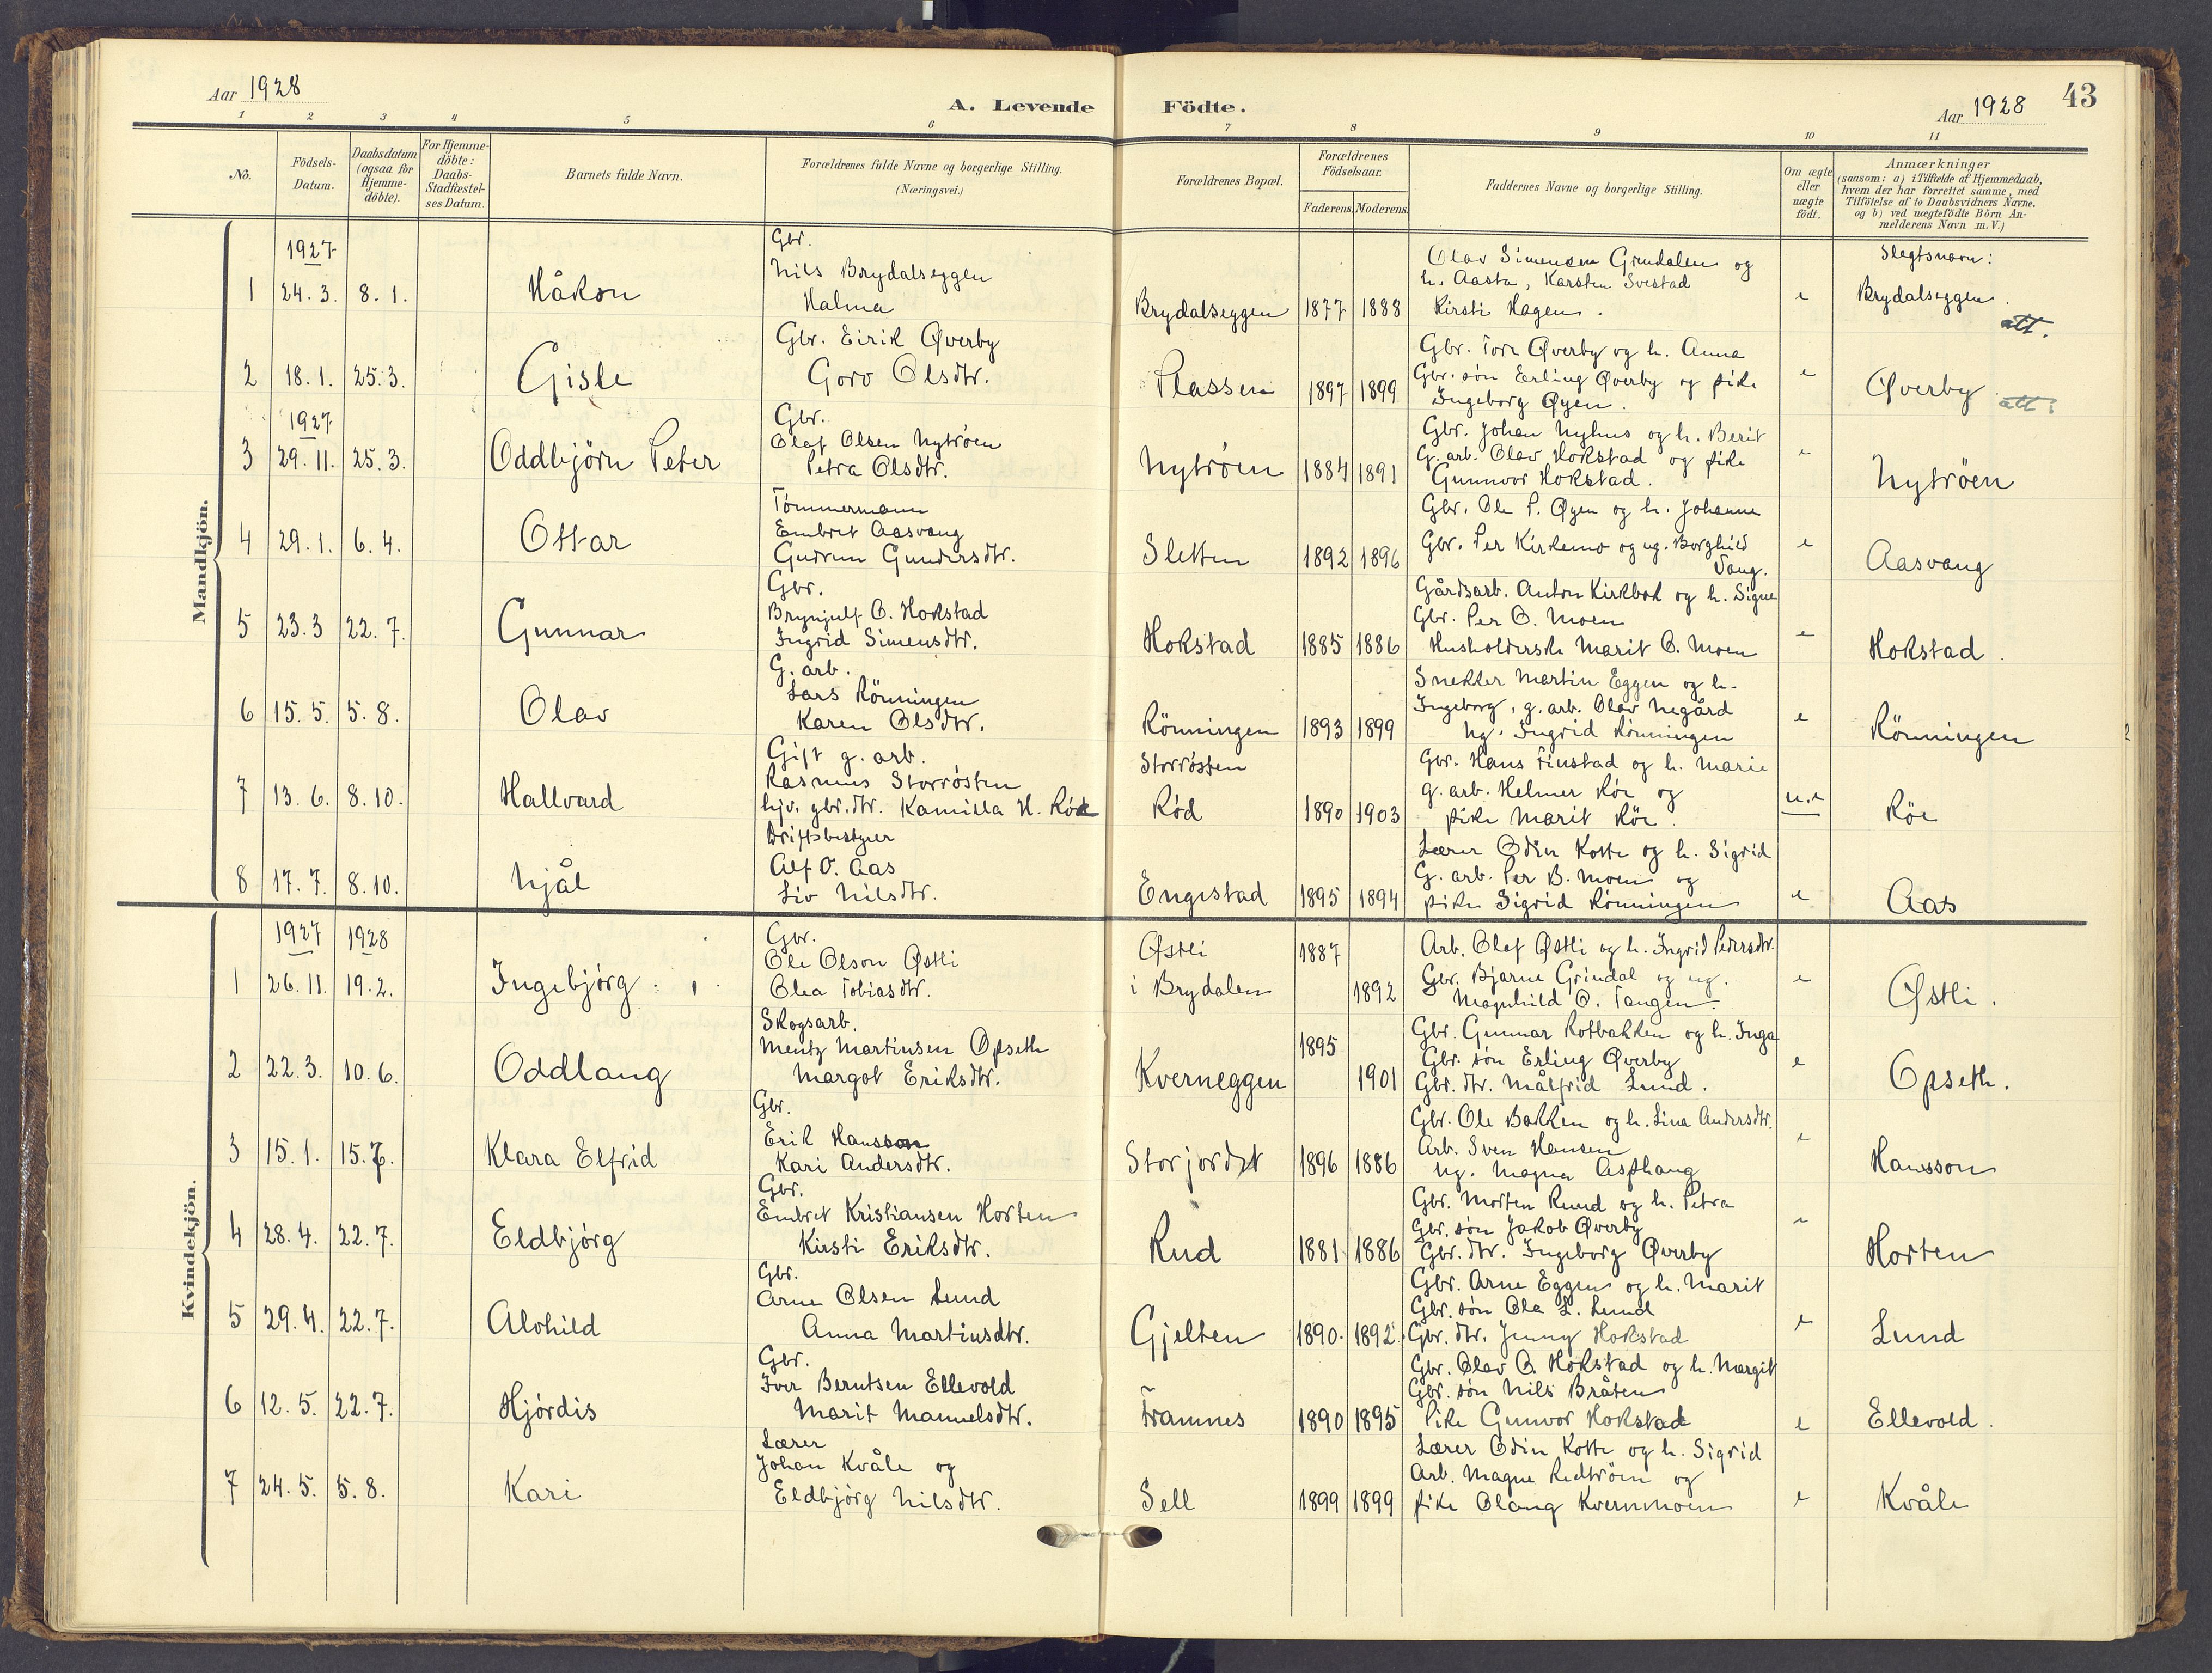 Aar 1928
A. Levende Födte.
Aar 1928
43
1 2 3 4 5 6 7 8 9 10 11
No.
Födsels-Datum.
Daabsdatum (ogsaa for Hjemme-döbte).
For Hjemme-döbte: Daabs-Stadfæstel-ses Datum.
Barnets fulde Navn.
Forældrenes fulde Navne og borgerlige Stilling.
(Næringsvei.)
Forældrenes Bopæl.
Forældrenes Födselsaar.
Faderens. Moderens.
Faddernes Navne og borgerlige Stilling.
Om ægte eller uægte födt.
Anmærkninger
(saasom: a) i Tilfælde af Hjemmedaab, hvem der har forrettet samme, med Tilföielse af to Daabsvidners Navne, og b) ved uægtefödte Börn Anmelderens Navn m. V.)
Mandkjön.
1927
1 24.3. 8.1. Håkon
Gbr.
Nils Brydalseggen
Halma
Brydalseggen 1877 1888
Olav Simensen Grindalen og
h. Aasta, Karsten Svestad
Kirsti Hagen.
e
Slegtsnavn:
Brydalseggen.
att.
2 18.1. 25.3. Gisle
Gbr. Eirik Øverby
Goro Olsdtr.
Plassen 1897 1899
Gbr. Tore Øverby og h. Anna
Gbr. søn Erling Øverby og pike
Ingeborg Øyen.
e
Øverby
att.
1927
3 29.11. 25.3. Oddbjörn Peter
Gbr.
Olaf Olsen Nytrøen
Petra Olsdtr.
Nytrøen 1884 1891
Gbr. Johan Nyhus og h. Berit
G. arb. Olav Hokstad og pike
Gunnvor Hokstad.
e
Nytröen
4 29.1. 6.4. Ottar
Tømmermann
Embret Aasvang
Gudrun Gundersdtr.
Sletten 1892 1896
Gbr. Ole P. Øyen og h. Johanne
Gbr. Per Kirkemo og ug. Borghild
Vang.
e
Aasvang
5 23.3 22.7. Gunnar
Gbr.
Brynjulf O. Hokstad
Ingrid Simensdtr.
Hokstad 1885 1886
Gårdsarb. Anton Kirkbak og h. Signe
Gbr. Per O. Moen
Husholderske Marit O. Moen
e
Hokstad.
6 15.5. 5.8. Olav
G. arb.
Lars Rönningen
Karen Olsdtr.
Rönningen 1893 1899
Snekker Martin Eggen og h.
Ingeborg, g. arb. Olav Negård
Ug. Ingrid Rønningen
e
Rönningen
7 13.6. 8.10. Hallvard
Gift g. arb.
Rasmus Storrøsten
hjv. gbr.dtr. Kamilla H. Röe
Storrøsten
Rød 1890 1903
Gbr. Hans Finstad og h. Marie
g. arb. Helmer Röe og
pike Marit Röe.
u.e
Röe
8 17.7. 8.10. Njål
Driftsbestyrer
Alf O. Aas
Liv Nilsdtr.
Engestad 1895 1894
Lærer Odin Kotte og h. Sigrid
G. arb. Per B. Moen og
pike Sigrid Rönningen
e
Aas
Kvindekjön.
1927 1928
1 26.11. 19.2. Ingebjørg
Gbr.
Ole Olson Østli
Olea Tobiasdtr.
Østli
i Brydalen
1887
1892
Arb. Olaf Østli og h. Ingrid Pedersdtr.
Gbr. Bjarne Grindal og ug.
Magnhild O. Tangen.
e
Østli.
2 22.3. 10.6. Oddlaug
Skogsarb.
Mentz Martinsen Opseth
Margot Eriksdtr.
Kverneggen
1895
1901
Gbr. Gunnar Rotbakken og h. Inga
Gbr. søn Erling Øverby
Gbr. dtr. Målfrid Lund.
e
Opseth.
3 15.1. 15.7. Klara Elfrid
Gbr.
Erik Hansson
Kari Andersdtr.
Storjordet 1896 1886
Gbr. Ole Bakken og h. Lina Andersdtr.
Arb. Sven Hansen
Ug. Magna Asphaug
e
Hansson
4 28.4. 22.7. Eldbjørg
Gbr.
Embret Kristiansen Horten
Kirsti Eriksdtr.
Rud 1881 1886
Gbr. Morten Ruud og h. Petra
Gbr. søn Jakob Øverby
Gbr. dtr. Ingeborg Øverby
e
Horten
5 29.4. 22.7. Alvhild
Gbr.
Arne Olsen Lund
Anna Martinsdtr.
Gjelten 1890. 1892.
Gbr. Arne Eggen og h. Marit
Gbr. søn Ola L. Lund
Gbr. dtr. Jenny Hokstad
e
Lund
6 12.5. 22.7. Hjørdis
Gbr.
Iver Berntsen Ellevold
Marit Manuelsdtr.
Framnes 1890 1895
Gbr. Olav O. Hokstad og h. Margit
Gbr. søn Nils Bråten
Pike Gunvor Hokstad
e
Ellevold.
7 24.5. 5.8. Kari
Lærer
Johan Kvåle og
Eldbjørg Nilsdtr.
Sell 1899 1899
Lærer Odin Kotte og h. Sigrid
Arb. Magne Rudtrøen og
pike Olaug Kvernmoen
e
Kvåle